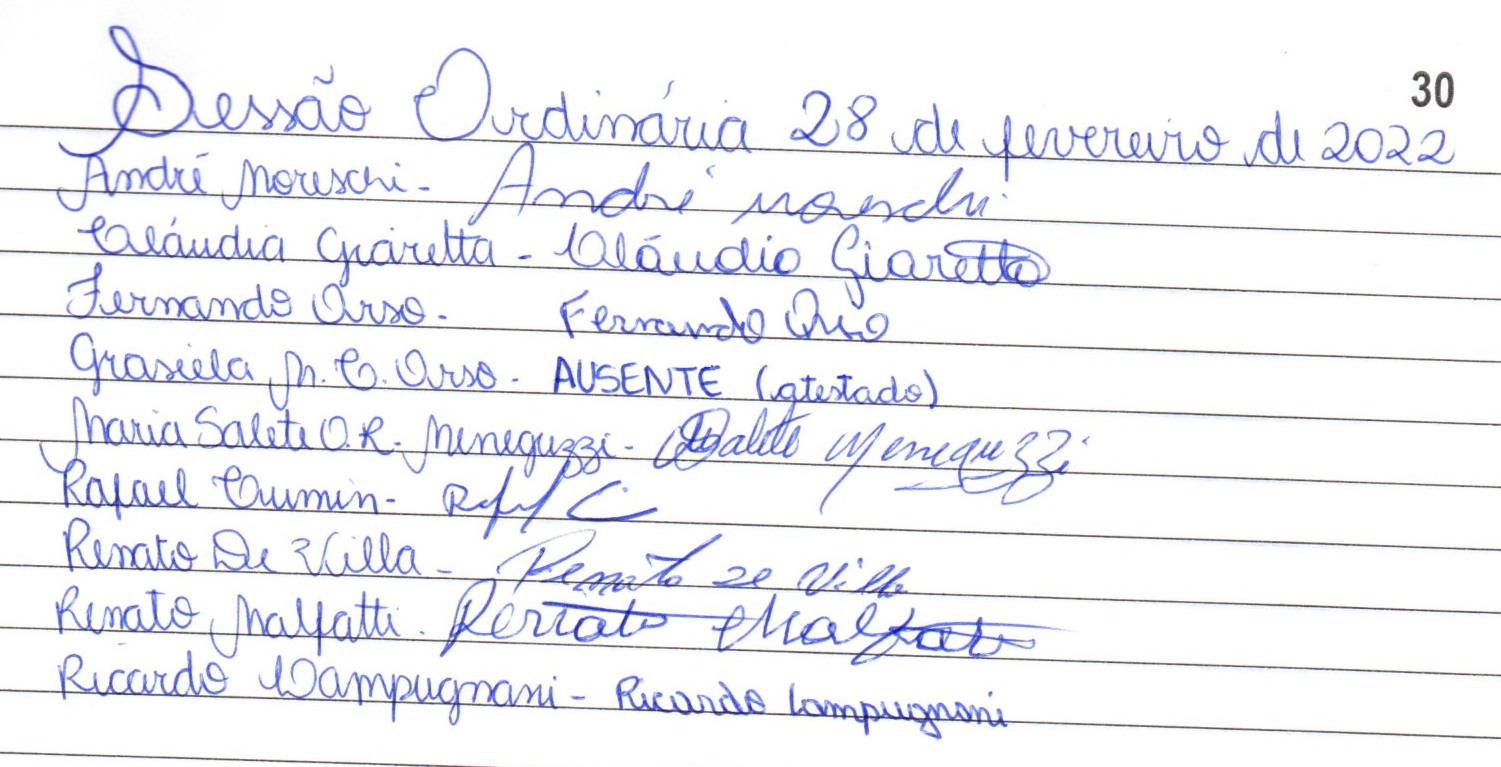 30
Sessão Ordinária 28 de fevereiro de 2022
André Moreschi - André Moreschi
Cláudia Giaretta - Cláudia Giaretta
Fernando Orso - Fernando Orso
Grasiela M. C. Orso - AUSENTE (atestado)
Maria Salete O.R. Meneguzzi - Salete Meneguzzi
Rafael Cumin - Rafael C
Renato De Villa - Renato de Villa
Renato Malfatti - Renato Malfatti
Ricardo Lampugnani - Ricardo Lampugnani